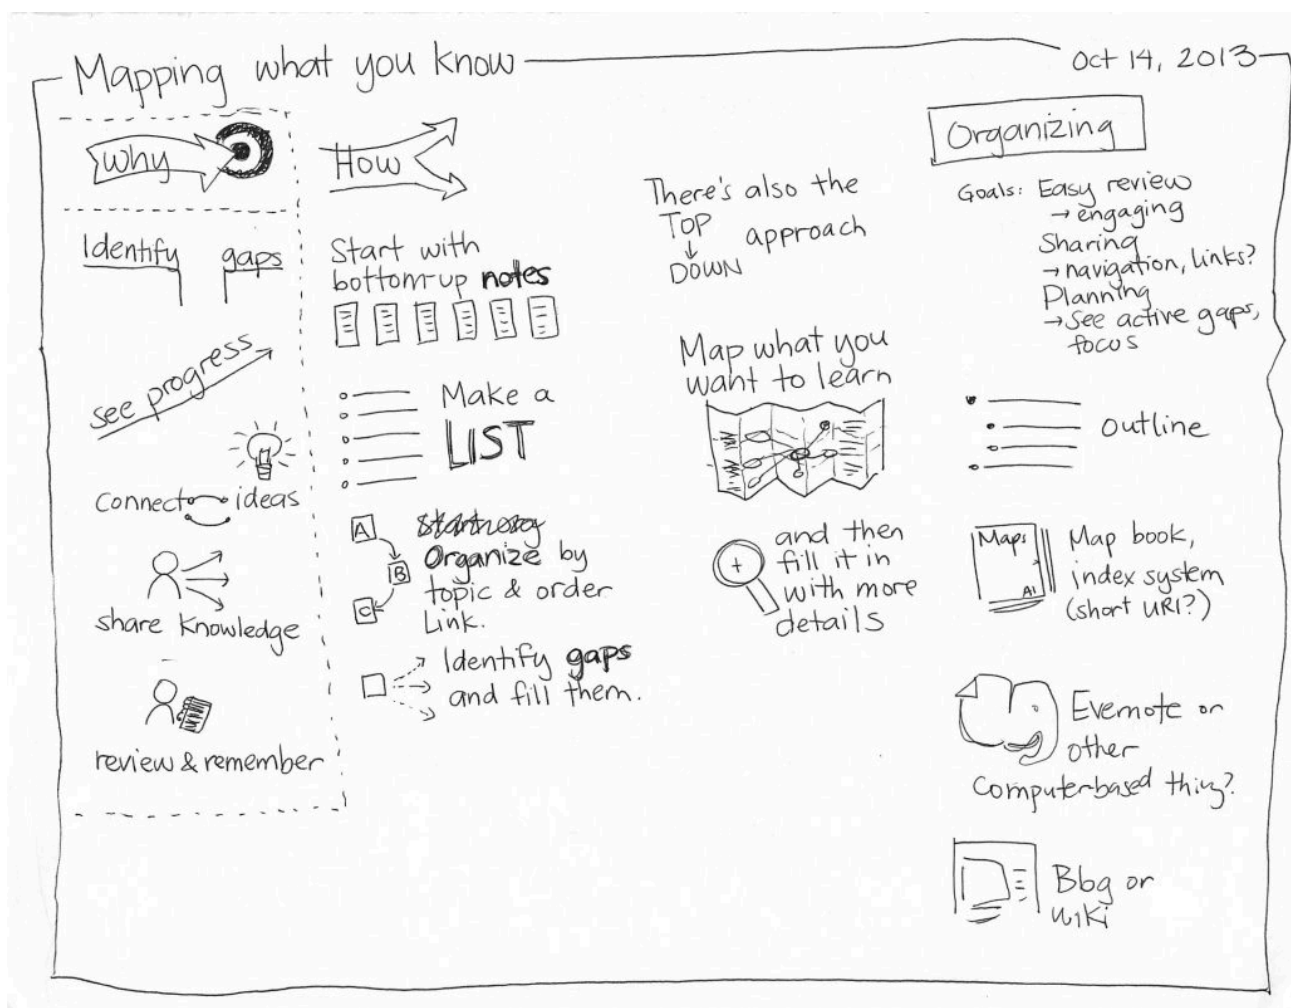 Mapping what you know
Oct 14, 2013
Why
Identify gaps
see progress
Connect ideas
share knowledge
review & remember
How
Start with
bottom-up notes
Make a
LIST
A
B
C
Organize by
topic & order
Link.
Identify gaps
and fill them.
There's also the
TOP
DOWN
approach
Map what you
want to learn
and then
fill it in
with more
details
Organizing
Goals: Easy review
→ engaging
Sharing
→ navigation, links?
Planning
→ See active gaps,
focus
outline
Maps
A1
Map book,
index system
(short URI?)
Evernote or
other
computer-based thing?
Blog or
wiki